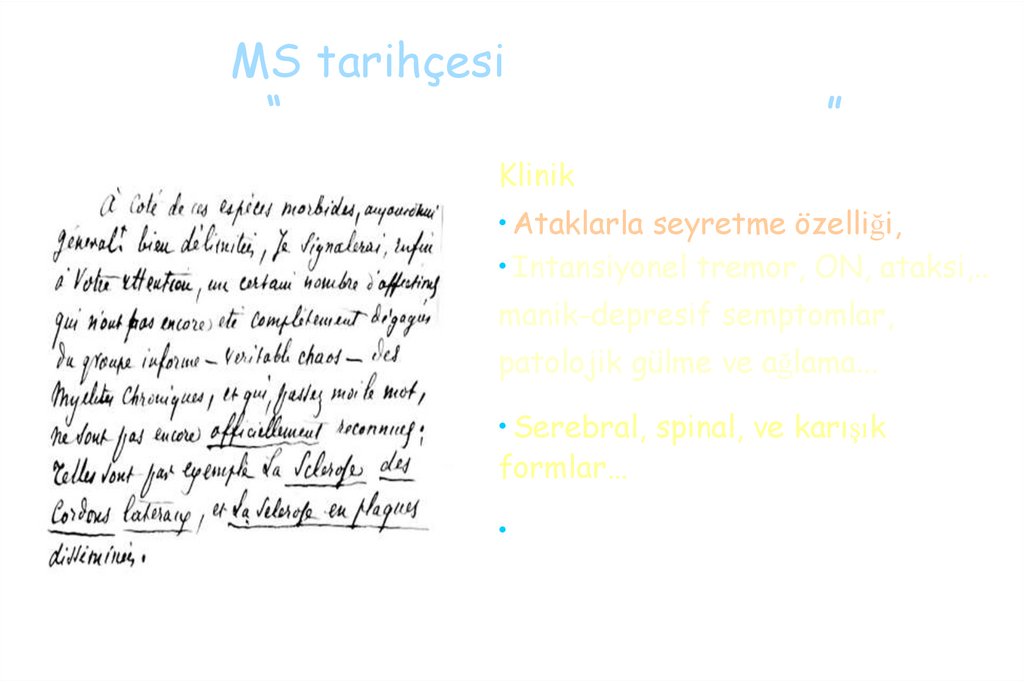 MS tarihçesi
“ ”
À coté de ces espèces morbides, aujourd'hui
général.t bien délimitées, Je signalerai, enfin
à Votre attention, un certain nombre d'affections
qui n'ont pas encore été complètement dégagées
du groupe informe – véritable chaos – des
Myélites Chroniques, et qui, passez moi le mot,
ne sont pas encore officiellement reconnues;
Telles sont par exemple La Sclerose des
Cordons latéraux, et La Sclerose en plaques
disséminées.
Klinik
•Ataklarla seyretme özelliği,
•Intansiyonel tremor, ON, ataksi,..
manik-depresif semptomlar,
patolojik gülme ve ağlama...
•Serebral, spinal, ve karışık
formlar…
•